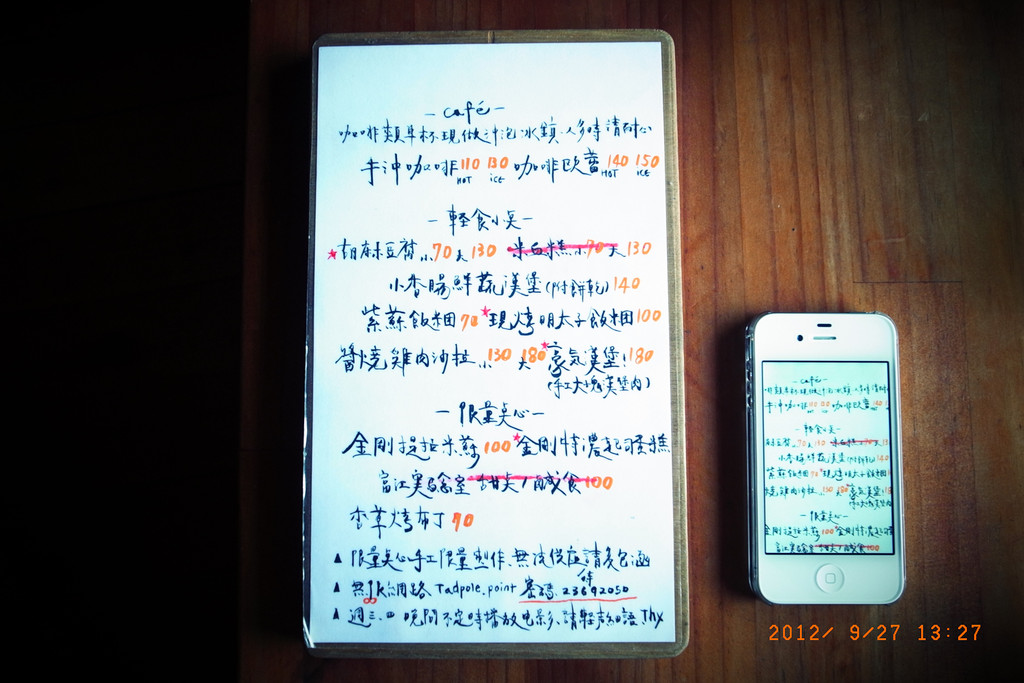 — café —
咖啡類單杯現做沖泡冰鎮.人多時請耐心
手沖咖啡110 HOT 130 ICE 咖啡歐蕾140 HOT 150 ICE
— 軽食小点 —
★胡麻豆腐 小70大130 米血糕小70大130
小香腸鮮蔬漢堡(附餅乾)140
紫蘇飯糰70 ★現烤明太子飯糰100
醬燒雞肉沙拉 小130 大180 ★豪氣漢堡!180
(手工大塊漢堡肉)
— 限量点心 —
金剛提拉米蘇100 ★金剛特濃起司蛋糕
富江實驗室 甜点/鹹食100
香草烤布丁70
▲ 限量点心手工限量製作.無法供應請多包涵
▲ 無線网路 Tadpole.point 密碼.23692050
▲ 週三.四晚間不定時播放电影.請輕声細語 Thx
— café —
手沖咖啡110 130 咖啡歐蕾140
— 軽食小点 —
麻豆腐 小70大130 米血糕小70大13
小香腸鮮蔬漢堡(附餅乾)140
紫蘇飯糰70 ★現烤明太子飯糰100
燒雞肉沙拉 小130 大180 豪氣漢堡!180
(手工大塊漢堡肉)
— 限量点心 —
金剛提拉米蘇100 金剛特濃起司
富江實驗室 甜点/鹹食100
2012/ 9/27 13:27